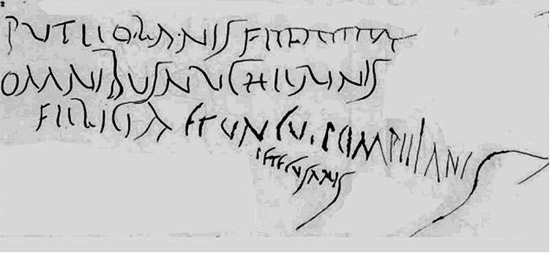 PUTEOLANIS FELICITER
OMNIBUS NUCHERINIS
FELICIA ET UNCU POMPEIANIS
PETECUSANIS